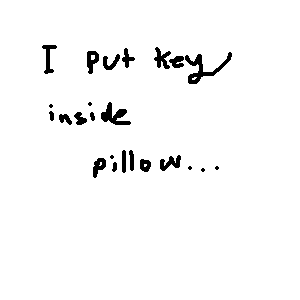 I put key
inside
pillow...